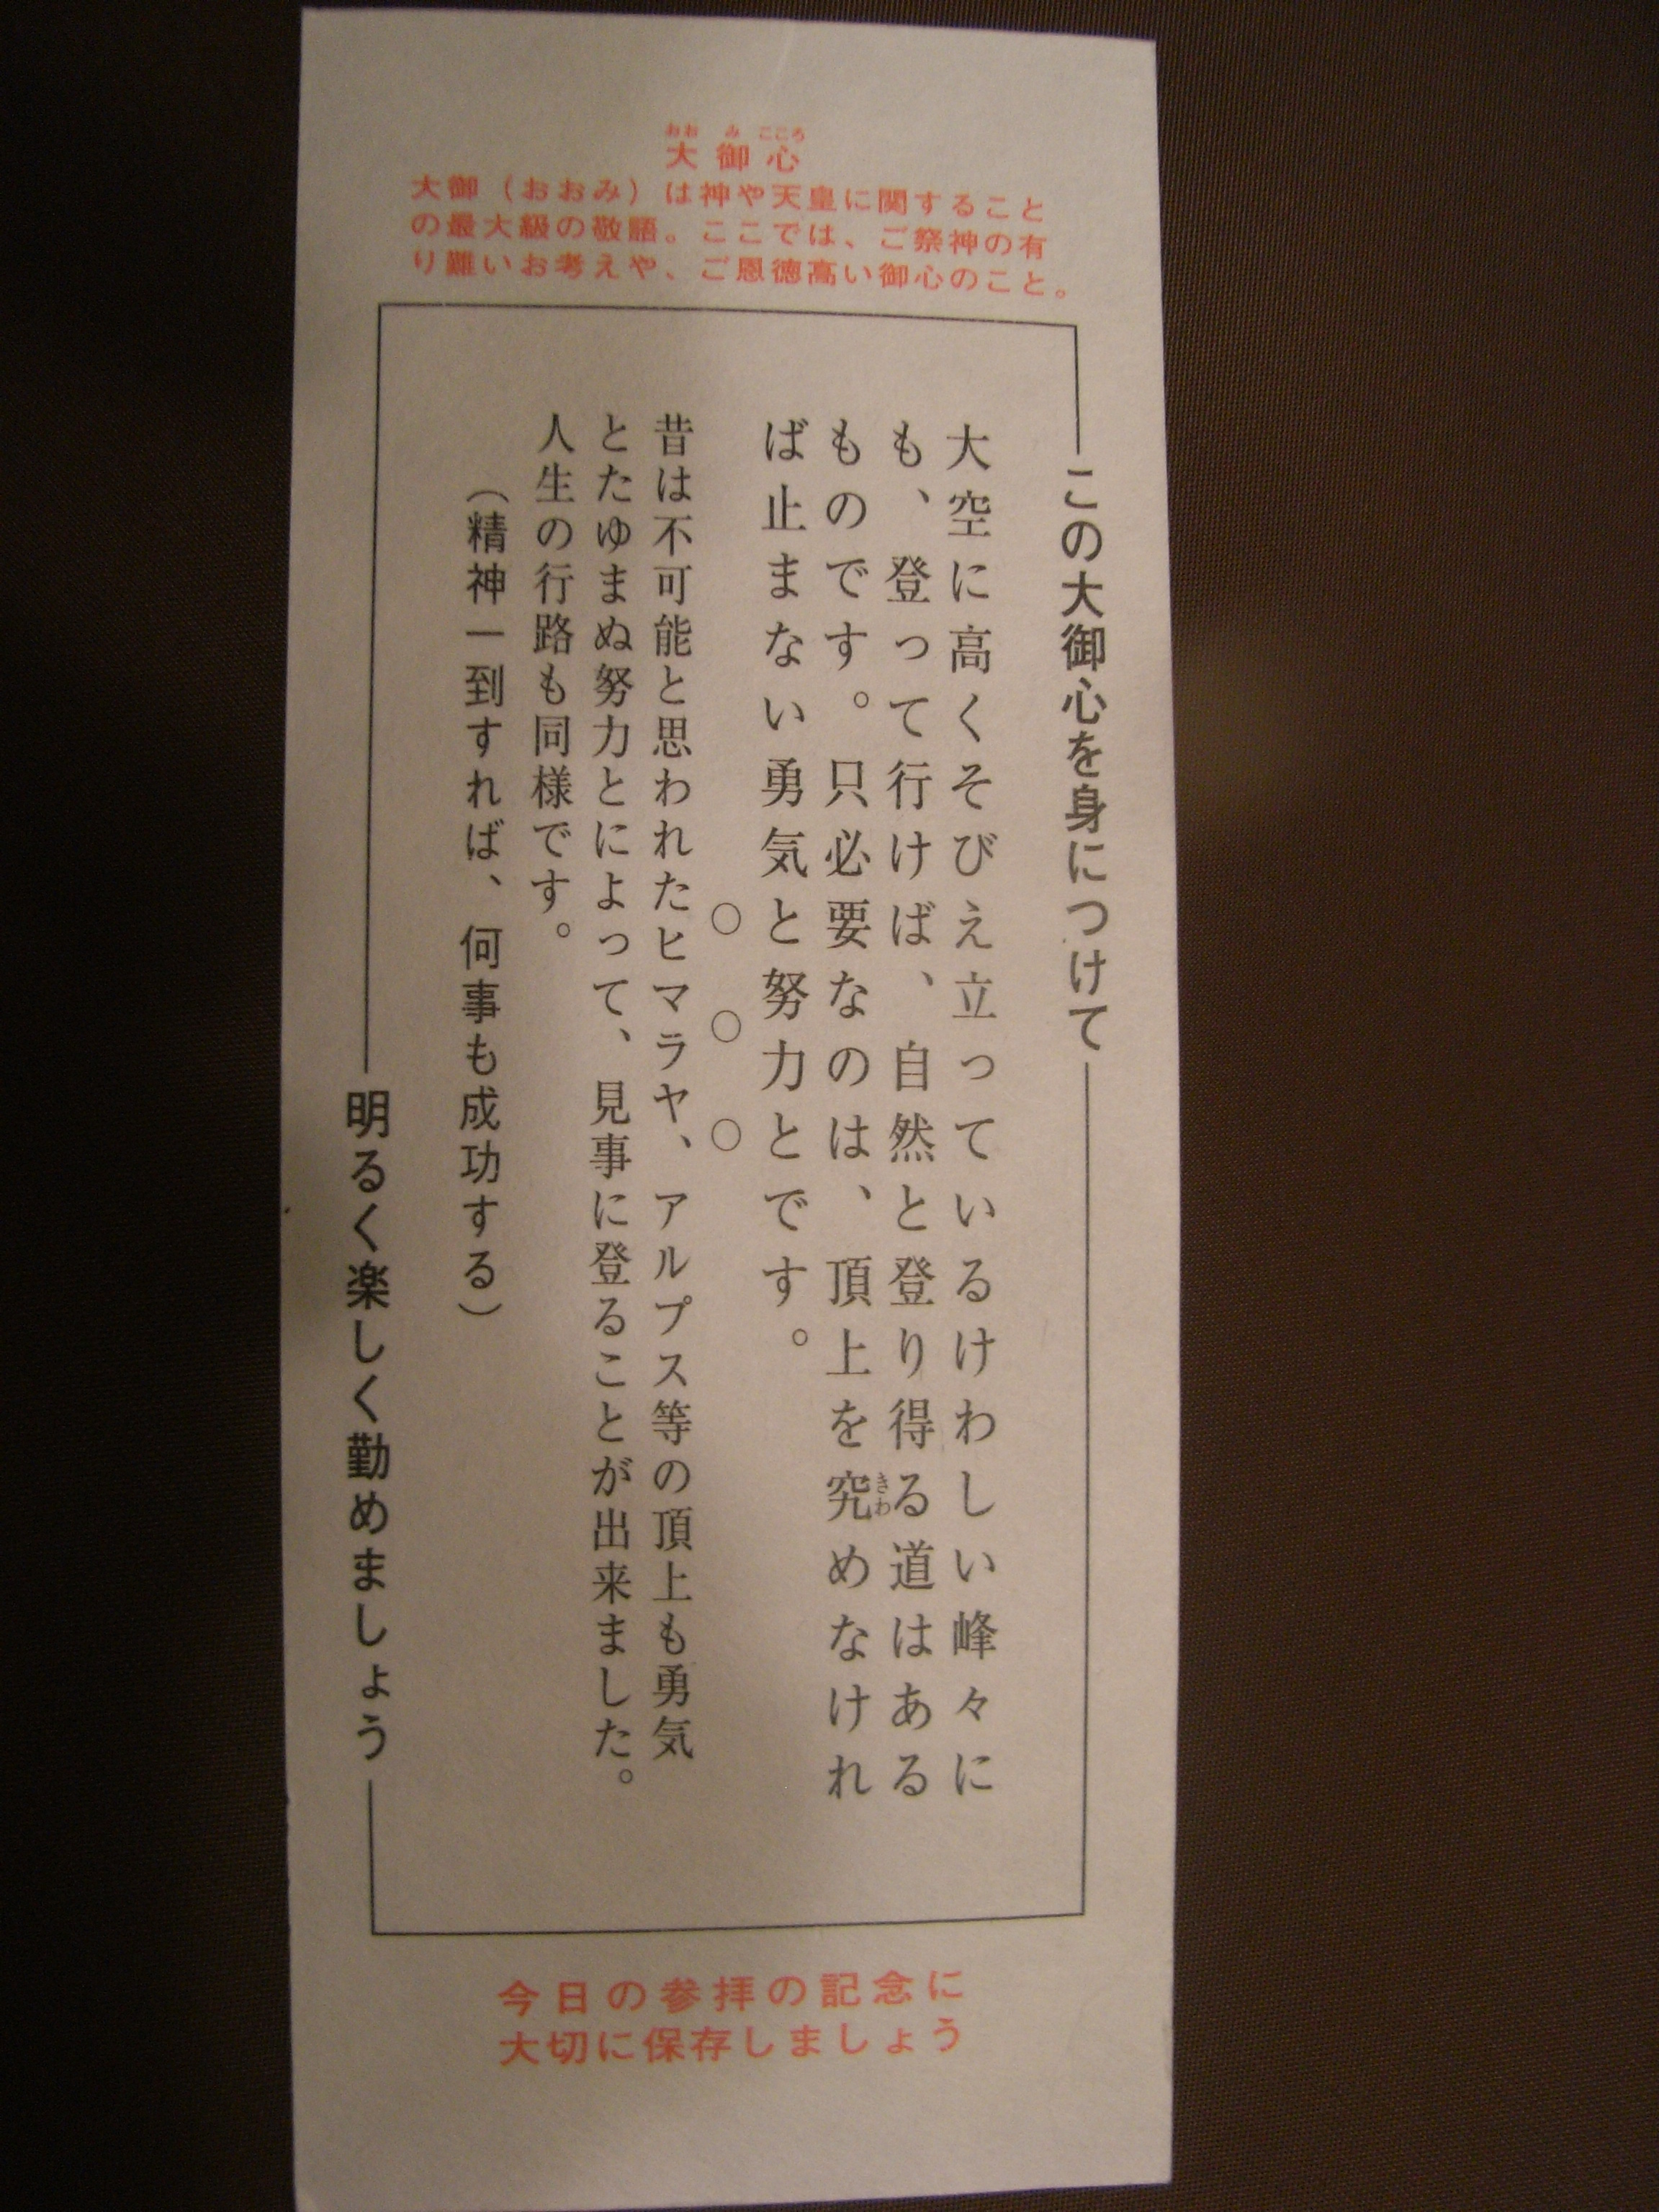 おおみこころ
大御心
大御（おおみ）は神や天皇に関すること
の最大級の敬語。ここでは、ご祭神の有
り難いお考えや、ご恩徳高い御心のこと。
この大御心を身につけて
大空に高くそびえ立っているけわしい峰々に
も、登って行けば、自然と登り得る道はある
ものです。只必要なのは、頂上を究めなけれ
きわ
ば止まない勇気と努力とです。
○○○
昔は不可能と思われたヒマラヤ、アルプス等の頂上も勇気
とたゆまぬ努力とによって、見事に登ることが出来ました。
人生の行路も同様です。
（精神一到すれば、何事も成功する）
明るく楽しく勤めましょう
今日の参拝の記念に
大切に保存しましょう